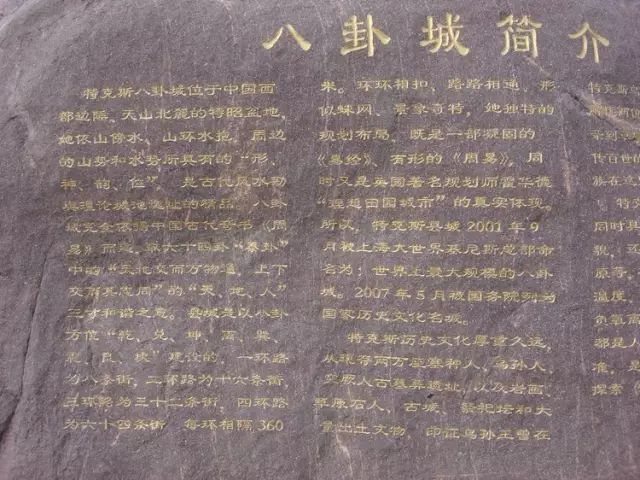 八卦城简介
特克斯八卦城位于中国西
部边陲、天山北麓的特昭盆地，
她依山傍水、山环水抱，周边
的山势和水势所具有的“形、
神、韵、位”，是古代风水勘
舆理论城池选址的精品。八卦
城完全依据中国古代奇书《周
易》而建，取六十四卦“泰卦”
中的“天地交而万物通，上下
交而其志同”的“天、地、人”
三才和谐之意。县城是以八卦
方位“乾、兑、坤、离、巽、
震、艮、坎”建设的，一环路
为八条街，二环路为十六条街，
三环路为三十二条街，四环路
为六十四条街，每环相隔360
米。环环相扣、路路相通，形
似蛛网、景象奇特，她独特的
规划布局，既是一部凝固的
《易经》、有形的《周易》，同
时又是英国著名规划师霍华德
“理想田园城市”的真实体现。
所以，特克斯县城2001年9
月被上海大世界基尼斯总部命
名为：世界上最大规模的八卦
城。2007年5月被国务院列为
国家历史文化名城。
特克斯历史文化厚重久远，
从现存两万座塞种人、乌孙人、
突厥人古墓葬遗址，以及岩画
草原石人、古城、祭祀坛和大
量出土文物，印证乌孙王曾在
特克斯
传百世的
族在这
特克
同时
貌，
原等，
温度、
负氧离
都是人
准，是
探索